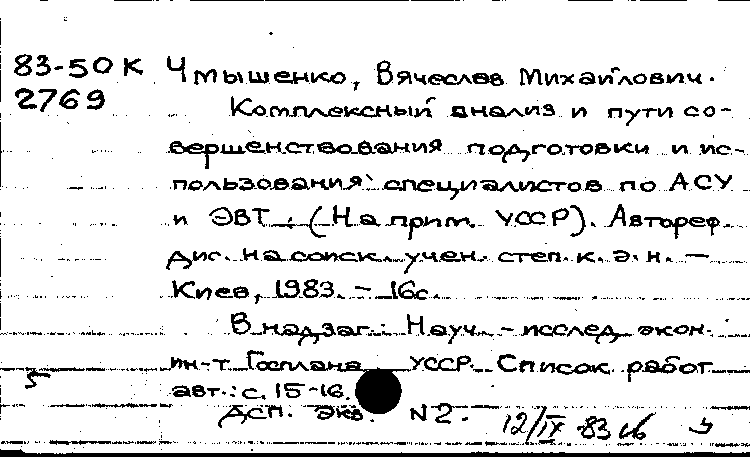 83-50К Чмышенко, Вячеслав Михайлович.
2769 Комплексный анализ и пути со-
вершенствования подготовки и ис-
пользования специалистов по АСУ
и ЭВТ: (На прим. УССР). Автореф.
дис. на соиск. учен. степ. к. э. н. —
Киев, 1983. - 16с.
В надзаг.: Науч. - исслед. экон.
ин-т Госплана УССР. Список работ
5 авт.: с. 15-16.
ДСП. Экз. N2. 12/IX-83